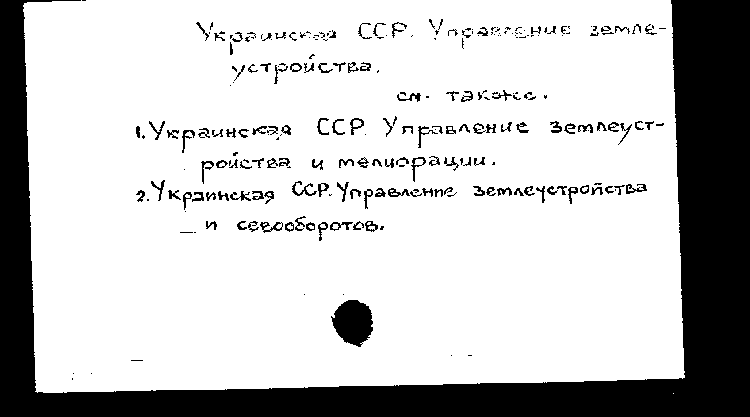 Украинская ССР. Управление земле-
устройства.
см. также.
1. Украинская ССР. Управление землеуст-
ройства и мелиорации.
2. Украинская ССР. Управление землеустройства
и севооборотов.